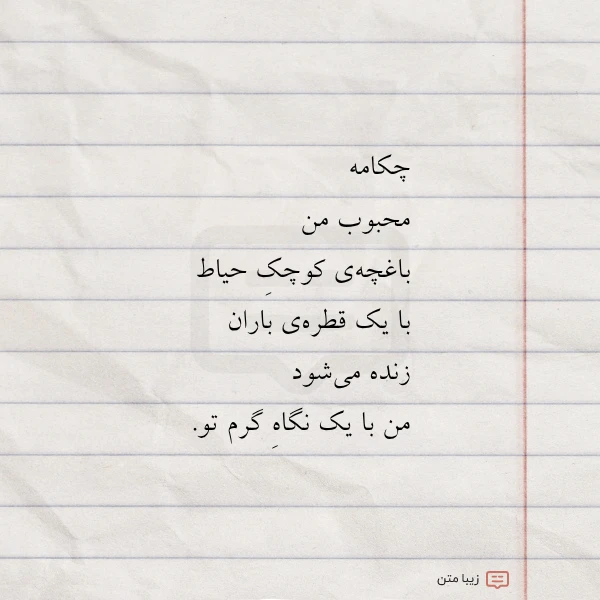 چکامه
محبوب من
باغچه‌ی کوچکِ حیاط
با یک قطره‌ی باران
زنده می‌شود
من با یک نگاهِ گرم تو.
زیبا متن